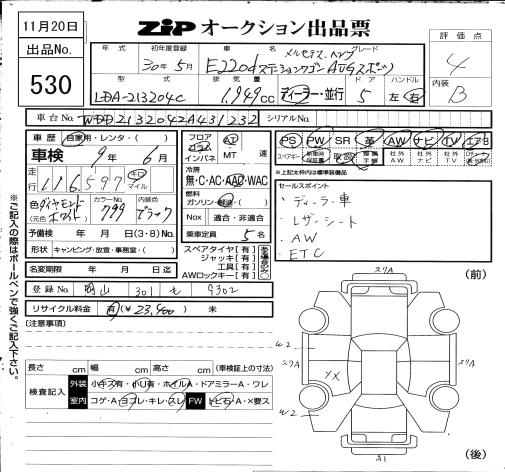 11月20日
ZiP オークション出品票
出品No.
530
評価点
4
内装
B
年式 初年度登録 車名 グレード
30年5月 E220d ステーションワゴン AVGスポーツ
メルセデス・ベンツ
型式 排気量 ドア ハンドル
LDA-213204C 1,949cc ディーラー・並行 5 左・右
車台No. WDD2132042A431232 シリアルNo.
車歴 自家用・レンタ・( )
車検 9年6月
走行 116,597 キロ マイル
色 ダイヤモンドホワイト (元色 )
カラーNo. 799
内装色 ブラック
予備検 年 月 日(3・8)No.
形状 キャンピング・放宣・事務室・( )
名変期限 年 月 日迄
登録No. 岡山 301 も 9302
リサイクル料金 有(¥23,400) 未
フロア コラム インパネ
AT MT 速
冷房
無・C・AC・AAC・WAC
燃料
ガソリン・軽油・( )
Nox 適合・非適合
乗車定員 5名
スペアタイヤ【有】
ジャッキ【有】
工具【有】
AWロックキー【有】
PS PW SR 革 AW ナビ TV エアB
スペアキー 取説 社外AW 社外ナビ 社外TV
※上記太枠内は標準装備品
セールスポイント
・ディーラー車
・レザーシート
・AW
・ETC
(注意事項)
長さ cm 幅 cm 高さ cm (車検証上の寸法)
検査記入
外装 小キズ有・小凹有・ホイルA・ドアミラーA・ワレ
室内 コゲ・A・ヨゴレ・キレ・スレ FW トビ石・A・×要ス
ご記入の際はボールペンで強くご記入下さい。
(前)
スリA
W2
スリA
YX
スリA
W2
A1
(後)